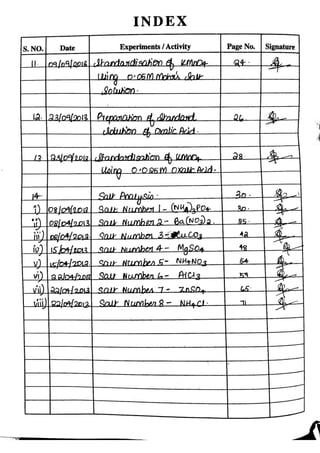 INDEX
S. NO. Date Experiments / Activity Page No. Signature
11. 09/09/2013 Standardisation of KMnO4 24.
Using 0.05M Mohr's Salt
Solution.
12. 23/09/2013 Preparation of Standard 26.
Solution of Oxalic Acid.
13 Standardisation of KMnO4 28
Using 0.005M Oxalic Acid.
14 Salt Analysis. 30.
i) 08/04/2013 Salt Number 1 - (NH4)3PO4 30.
ii) 08/04/2013 Salt Number 2 - Ba(NO3)2. 35.
iii) 08/04/2013 Salt Number 3 - CuCO3 42
iv) 15/04/2013 Salt Number 4 - MgSO4 48
v) 15/04/2013 Salt Number 5 - NH4NO3 54
vi) 22/04/2013 Salt Number 6 - AlCl3 59
vii) 22/04/2013 Salt Number 7 - ZnSO4 65
viii) 22/04/2013 Salt Number 8 - NH4Cl. 71